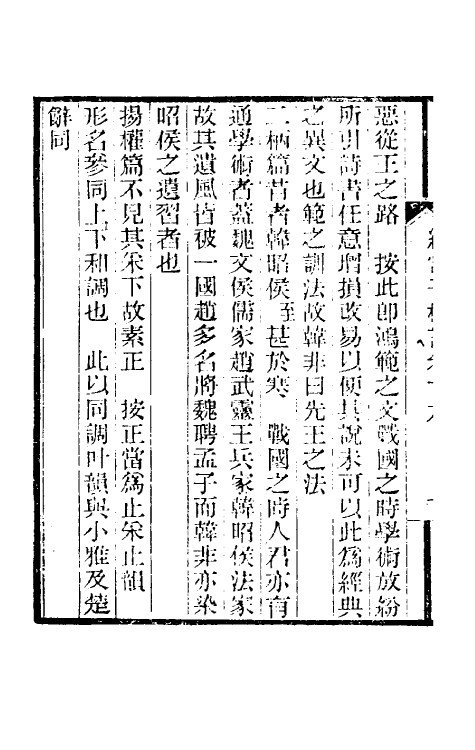 惡從王之路　按此卽鴻範之文戰國之時學術放紛
所引詩書任意增損改易以便其說未可以此爲經典
之異文也範之訓法故韓非曰先王之法
二柄篇昔者韓昭侯至甚於寒　戰國之時人君亦有
通學術者蓋魏文侯儒家趙武靈王兵家韓昭侯法家
故其遺風皆被一國趙多名將魏聘孟子而韓非亦染
昭侯之遺習者也
揚權篇不見其采下故素正　按正當爲止采止韻
形名參同上下和調也　此以同調叶韻與小雅及楚
辭同